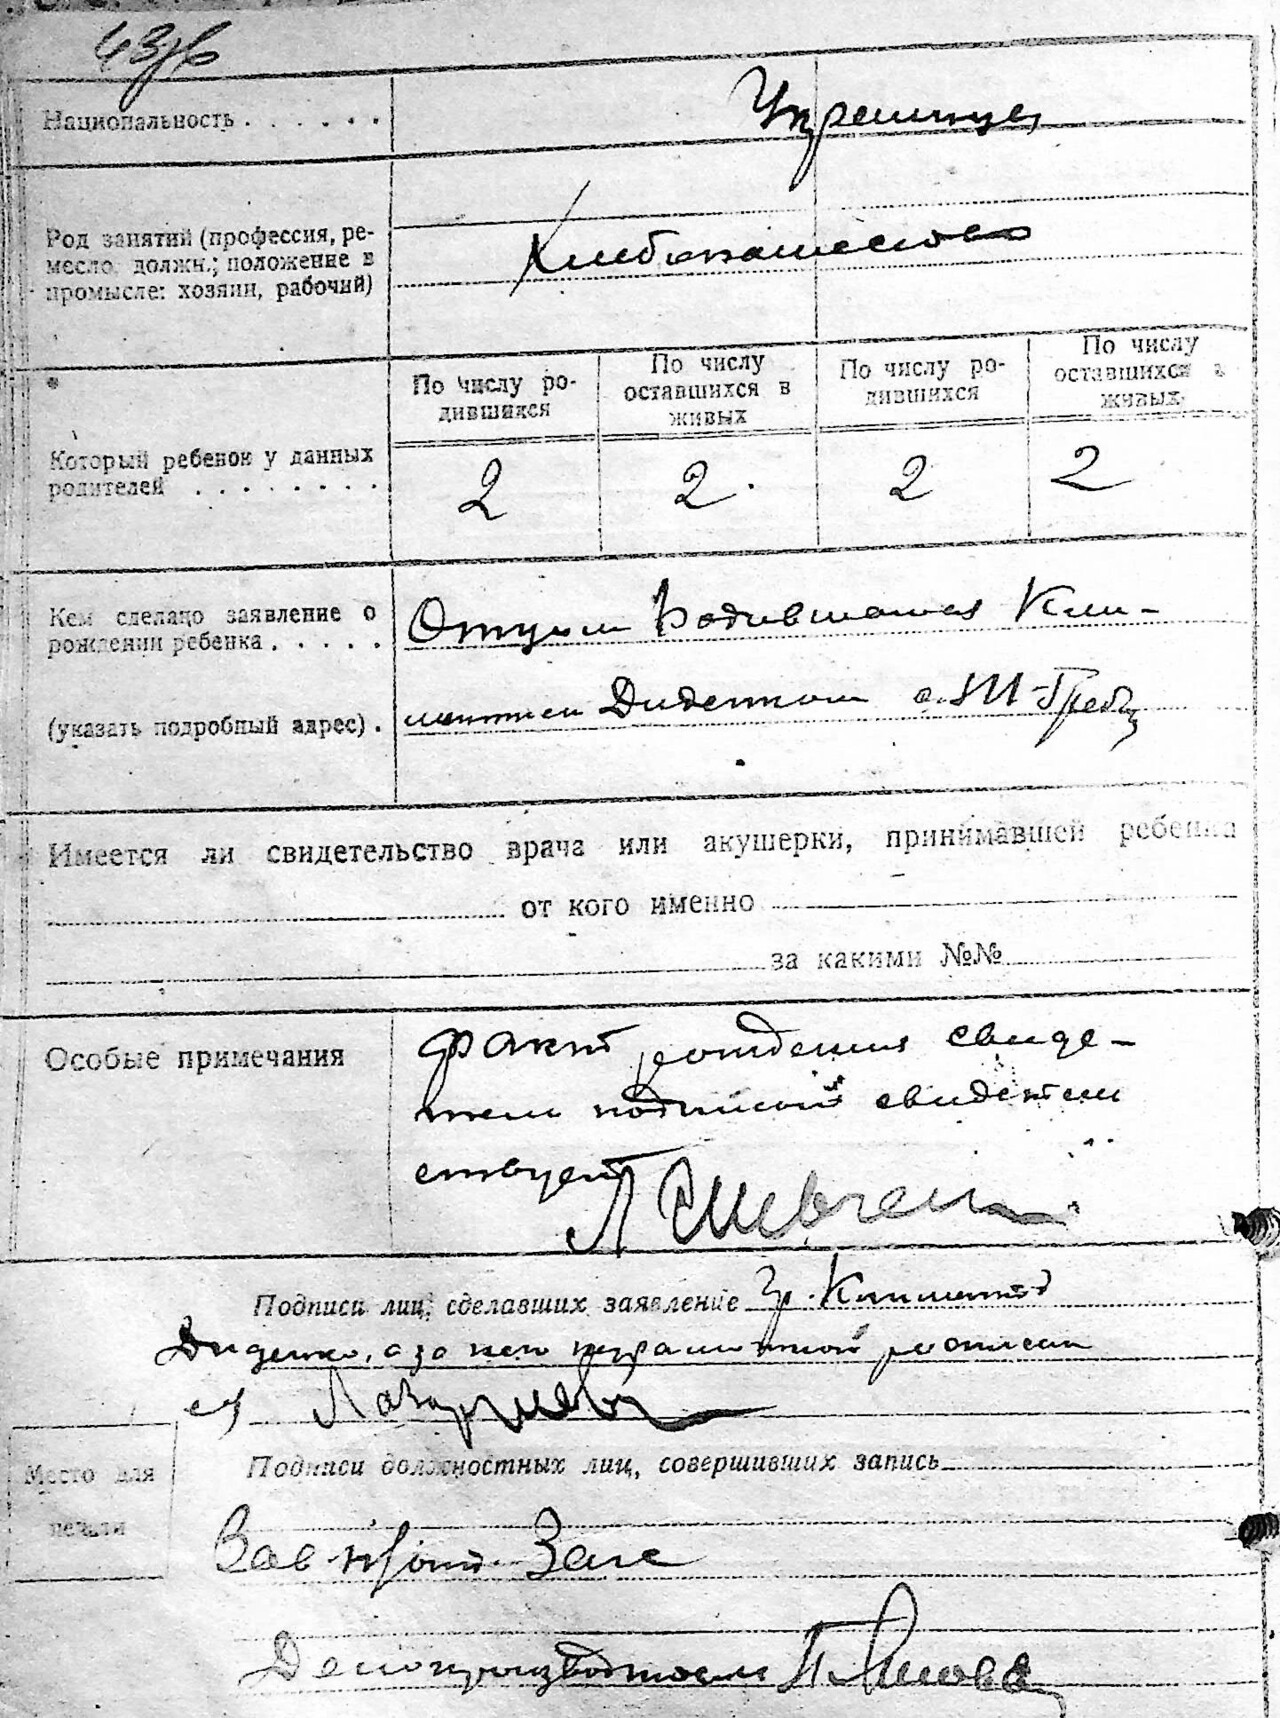 Национальность . . . . . .
Украинцы
Род занятий (профессия, ре-
месло, должн.; положение в
промысле: хозяин, рабочий)
Хлебопашество
По числу ро-
дившихся
По числу
оставшихся в
живых
По числу ро-
дившихся
По числу
оставшихся в
живых
Который ребенок у данных
родителей . . . . . . . .
2 2 2 2
Кем сделано заявление о
рождении ребенка . . . . .
Отцом Родившагося Кли-
(указать подробный адрес) .
ментием Диденком с.
Имеется ли свидетельство врача или акушерки, принимавшей ребенка
от кого именно
за какими №№
Особые примечания
Факт рождения свиде-
тели подписом свидетель
ствует
Подписи лиц, сделавших заявление гр. Климентий
Диденко, а за него неграмотного росписал
Подписи должностных лиц, совершивших запись
Место для
печати
Зав Загс
Делопроизводитель